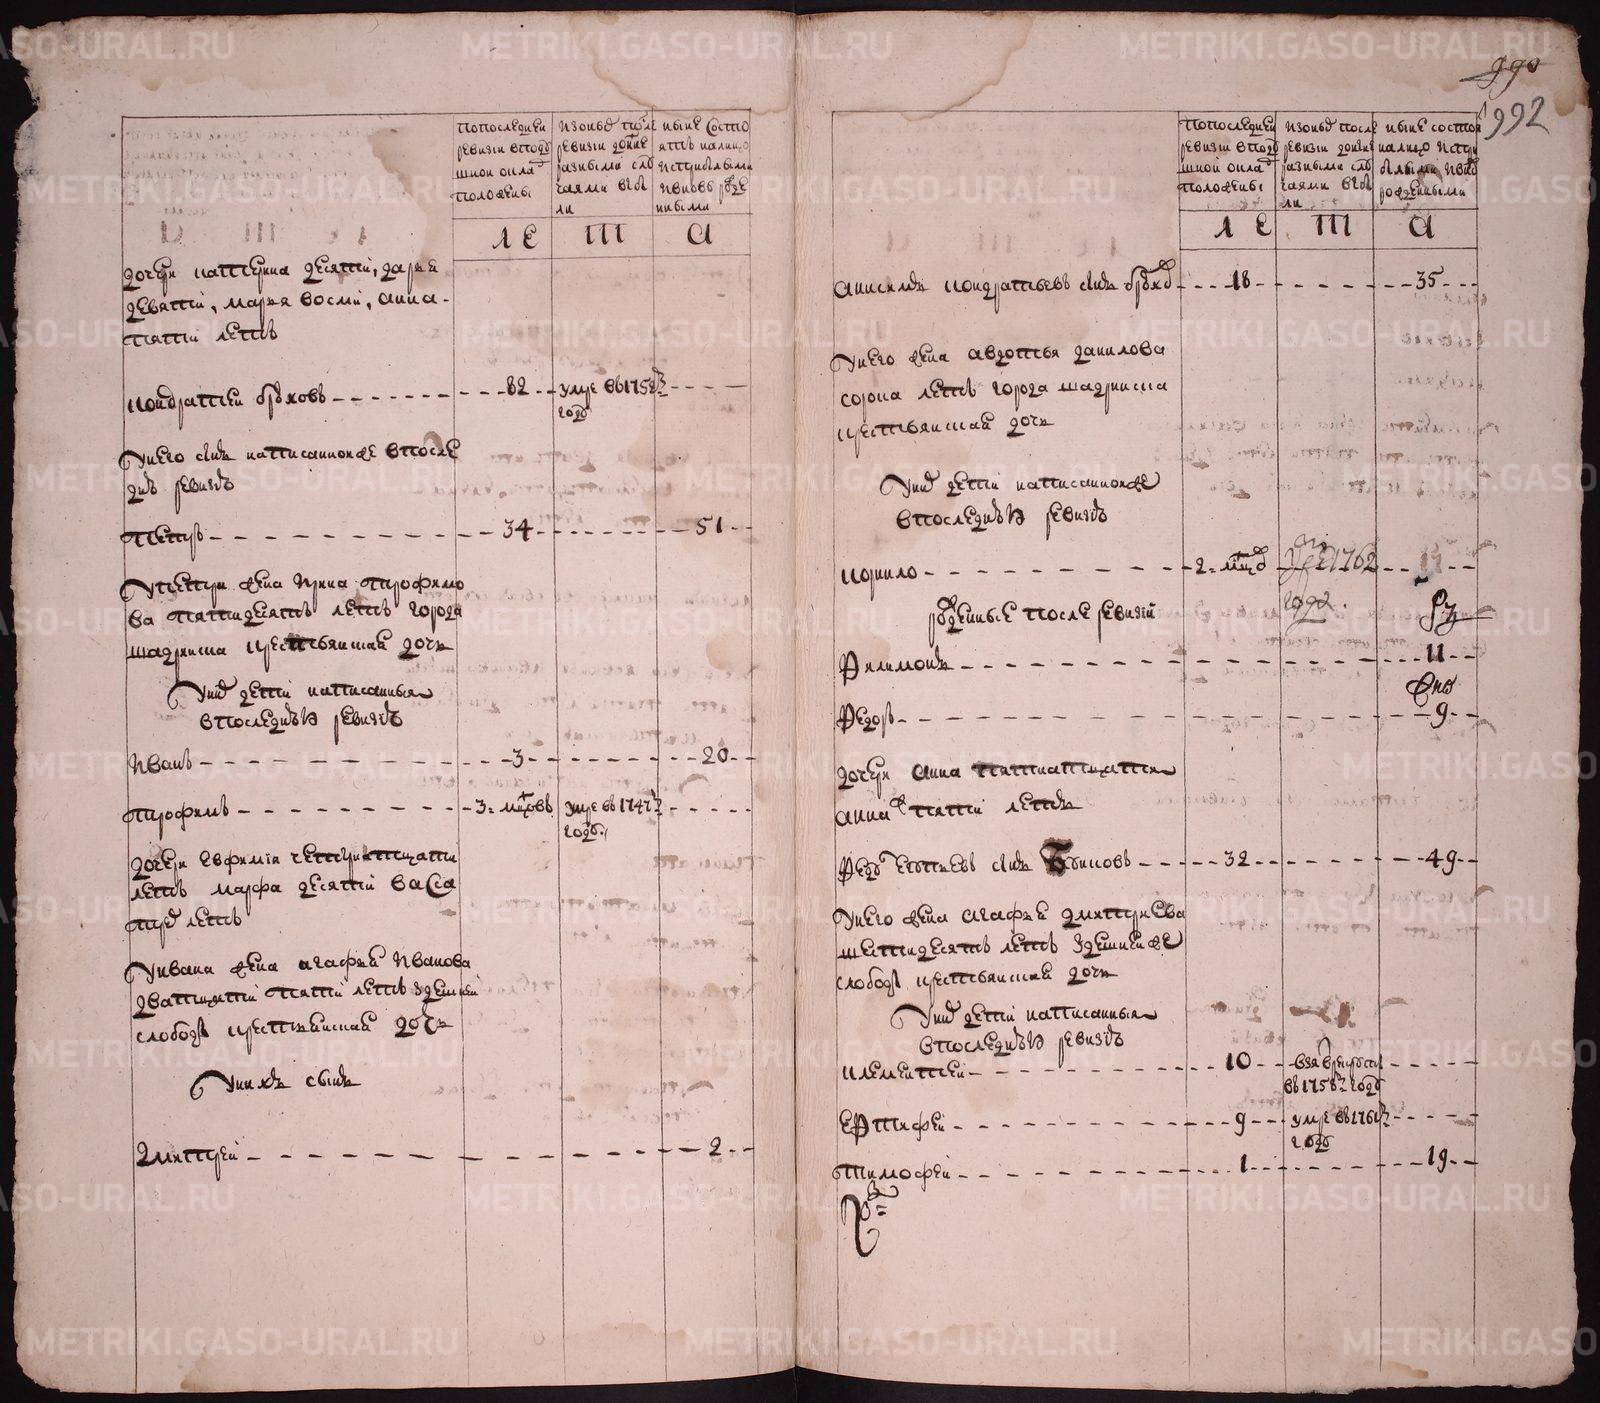 METRIKI.GASO-URAL.RU
990
992
попоследней ревизіи вподушной окладъ положены
изоныхъ после ревизіи до ныне разными случаями выбыли
ныне состоятъ налицо исприбылыми ивновь рожденными
дочери катерина десяти, дарья
девяти, марья восми, анна
пяти летъ
кондратей 82 умре в 1752м году
у него сынъ написанной же впосле
дней ревизіи
Петръ 34 51
у петра жена ирина трофимо
ва пятидесятъ летъ города
шадринска крестьянская дочь
у нихъ дети написанныя
впоследней ревизіи
иванъ 3 20
трофимъ 3 мцовъ умре в 1747м году
дочери евфимія четырнатцати
летъ марфа десяти васса
трехъ летъ
у ивана жена агафья иванова
дватцати пяти летъ здешней
слободы крестьянская дочь
у нихъ сынъ
дмитрей 2
попоследней ревизіи вподушной окладъ положены
изоныхъ после ревизіи до ныне разными случаями выбыли
ныне состоятъ налицо исприбылыми ивновь рожденными
анисимъ кондратьевъ сынъ 18 35
у него жена авдотья данилова
сорока летъ города шадринска
крестьянская дочь
у нихъ дети написанной же
впоследней ревизіи
корнило 2 мцъ 1762 году
рожденные после ревизіи
Филимонъ 11
Федоръ 9
дочери анна пятнатцати
анна ж пяти летъ
Федоръ сынъ 32 49
у него жена агафья дмитриева
шестидесятъ летъ здешней же
слободы крестьянская дочь
у нихъ дети написанныя
впоследней ревизіи
клементей 10 взятъ в рекруты в 1758м году
ерофей 9 умре в 1761м году
тимофей 1 19